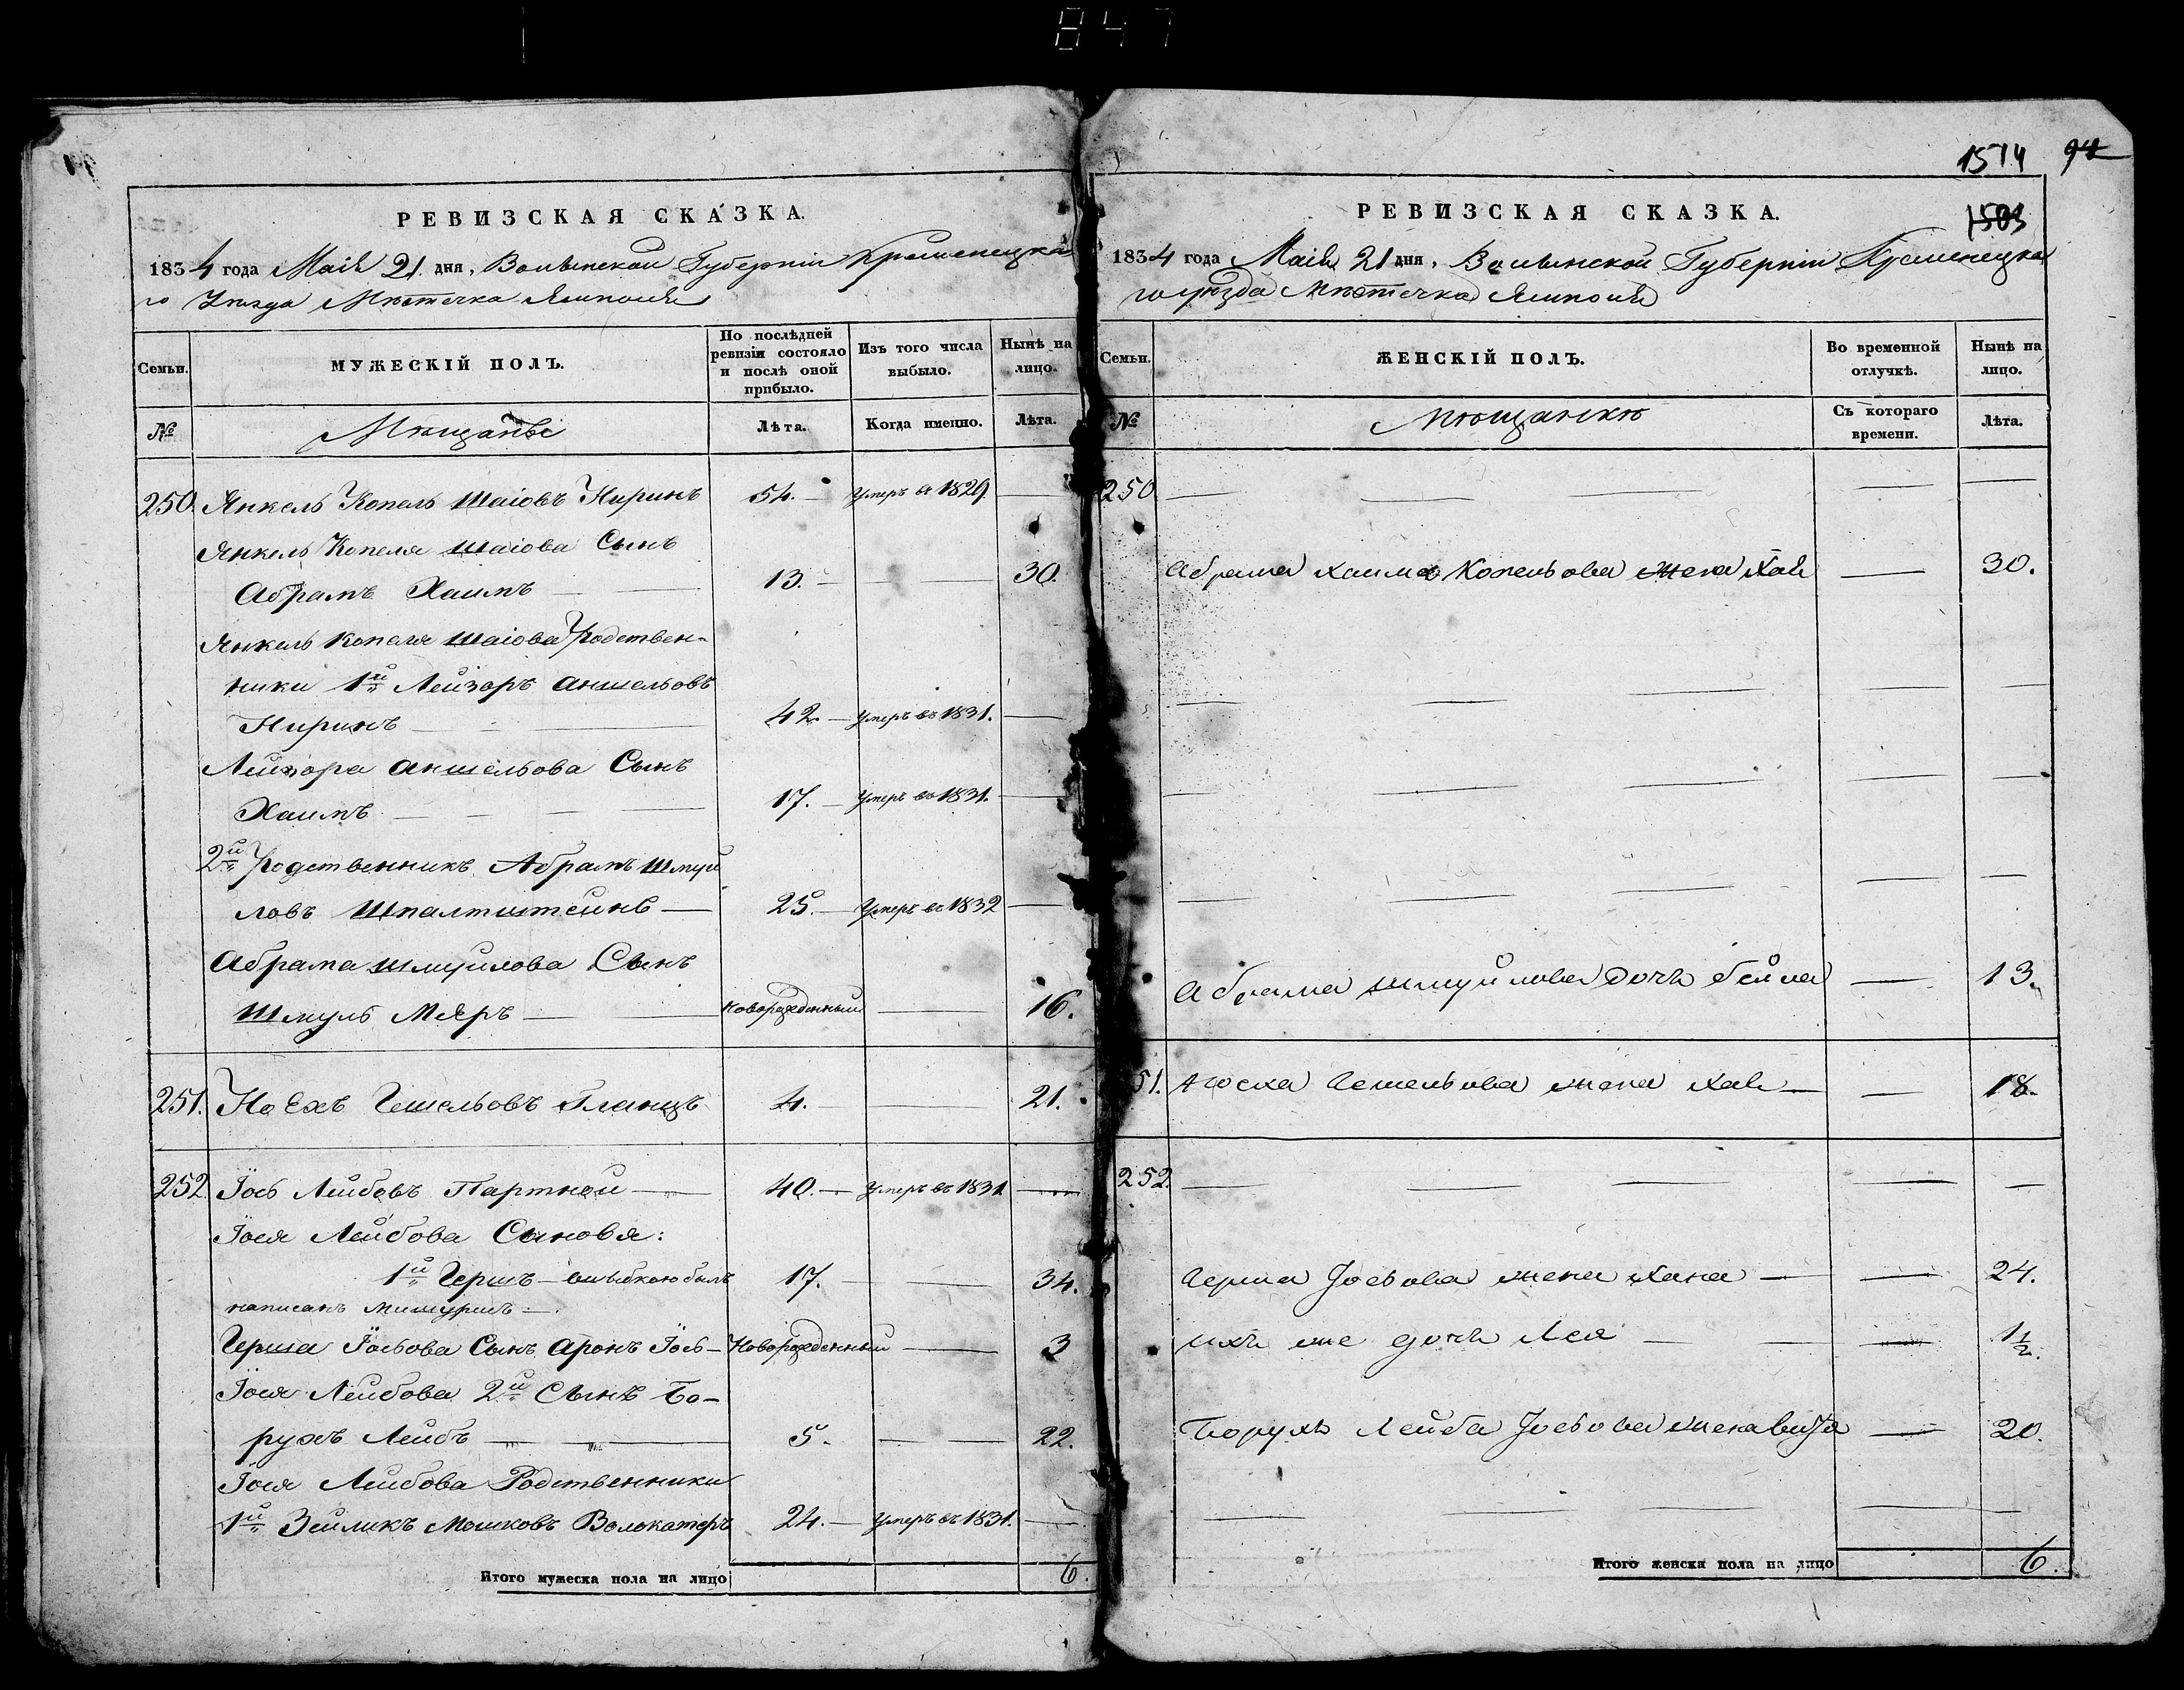 847
РЕВИЗСКАЯ СКАЗКА.
1834 года Маія 21 дня, Волынской Губерніи Кременецка
го Уѣзда Мѣстечка Ямполя
Семьи.
МУЖЕСКІЙ ПОЛЪ.
По послѣдней ревизіи состояло и послѣ оной прибыло.
Изъ того числа выбыло.
Нынѣ на лицо.
№
Мѣщане
Лѣта.
Когда именно.
Лѣта.
250. Янкель Копель Шаіовъ Ниринъ 54. — Умеръ въ 1829 —
Янкель Копеля Шаіова Сынъ
Абрамъ Хаимъ — 13. — 30.
Янкель Копеля Шаіова Родствен-
ники 1й Лейзоръ Аншельовъ
Ниринъ — 42. — Умеръ въ 1831. —
Лейзора Аншельова Сынъ
Хаимъ — 17. — Умеръ въ 1831. —
2й Родственникъ Абрамъ Шмуй
ловъ Шпалтштейнъ — 25. — Умеръ въ 1832 —
Абрама Шмуйлова Сынъ
Шмуль Меяръ — Новорожденный — 16.
251. Но Гешельовъ Гланцъ 4. — 21.
252. Іось Лейбовъ Партной — 40. — Умеръ въ 1831 —
Іося Лейбова Сыновя:
1й Гершъ — ошибкою былъ 17. — 34.
написанъ Мишуришъ —
Герша Іосьова Сынъ Аронъ Іось — Новорожденный — 3
Іося Лейбова 2й Сынъ Бо-
рухъ Лейбъ — 5. — 22.
Іося Лейбова Родственники
1й Зейликъ Мошковъ Волокатеръ 24. — Умеръ въ 1831. —
Итого мужеска пола на лицо 6.
1514 94
1503
РЕВИЗСКАЯ СКАЗКА.
1834 года Маія 21 дня, Волынской Губерніи Кременецка
го уѣзда Мѣстечка Ямполя
Семьи.
ЖЕНСКІЙ ПОЛЪ.
Во временной отлучкѣ.
Нынѣ на лицо.
№
Мѣщанки
Съ котораго времени.
Лѣта.
250 —
Абрама Хаима Копельова жена Хая — 30.
Абрама Шмуйлова дочь Бейла — 13.
51. Гешельова жена Хая — 18.
252. —
Герша Іосьова жена Хана — 24.
ихъ же дочь Лея — 1½.
Борухъ Лейба Іосьова жена — 20.
Итого женска пола на лицо 6.